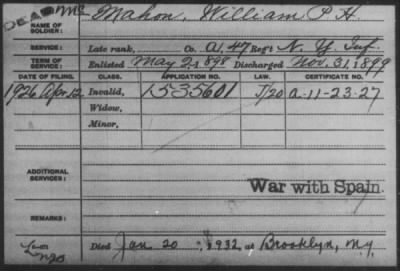 DEAD Mc Mahon, William P. H.
NAME OF SOLDIER:
SERVICE: Late rank, Co. A, 47 Reg't N. Y. Inf.
TERM OF SERVICE: Enlisted May 2, 1898 Discharged Nov. 31, 1899
DATE OF FILING. CLASS. APPLICATION NO. LAW. CERTIFICATE NO.
1926 Apr. 12 Invalid, 1535601 J/20 A-11-23-27
Widow,
Minor,
ADDITIONAL SERVICES:
War with Spain.
REMARKS:
Died Jan 20, 1932, at Brooklyn, N.Y.